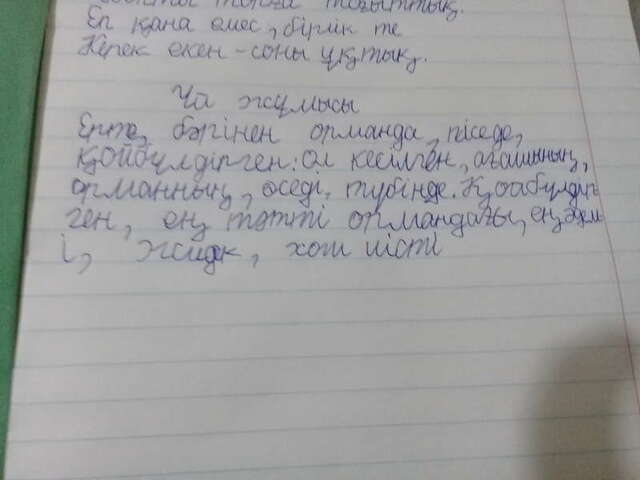 тоғыттық.
Еп қана емес, бірлік те
Керек екен - соны ұқтық.
Үй жұмысы
Ерте, бәрінен орманда, піседе,
Қойбүлдірген. Ол кесілген, ағашының,
орманның, өседі, түбінде. Қоабүлдір
ген, ең тәтті ормандағы, ең әдем
і, жидек, хош иісті